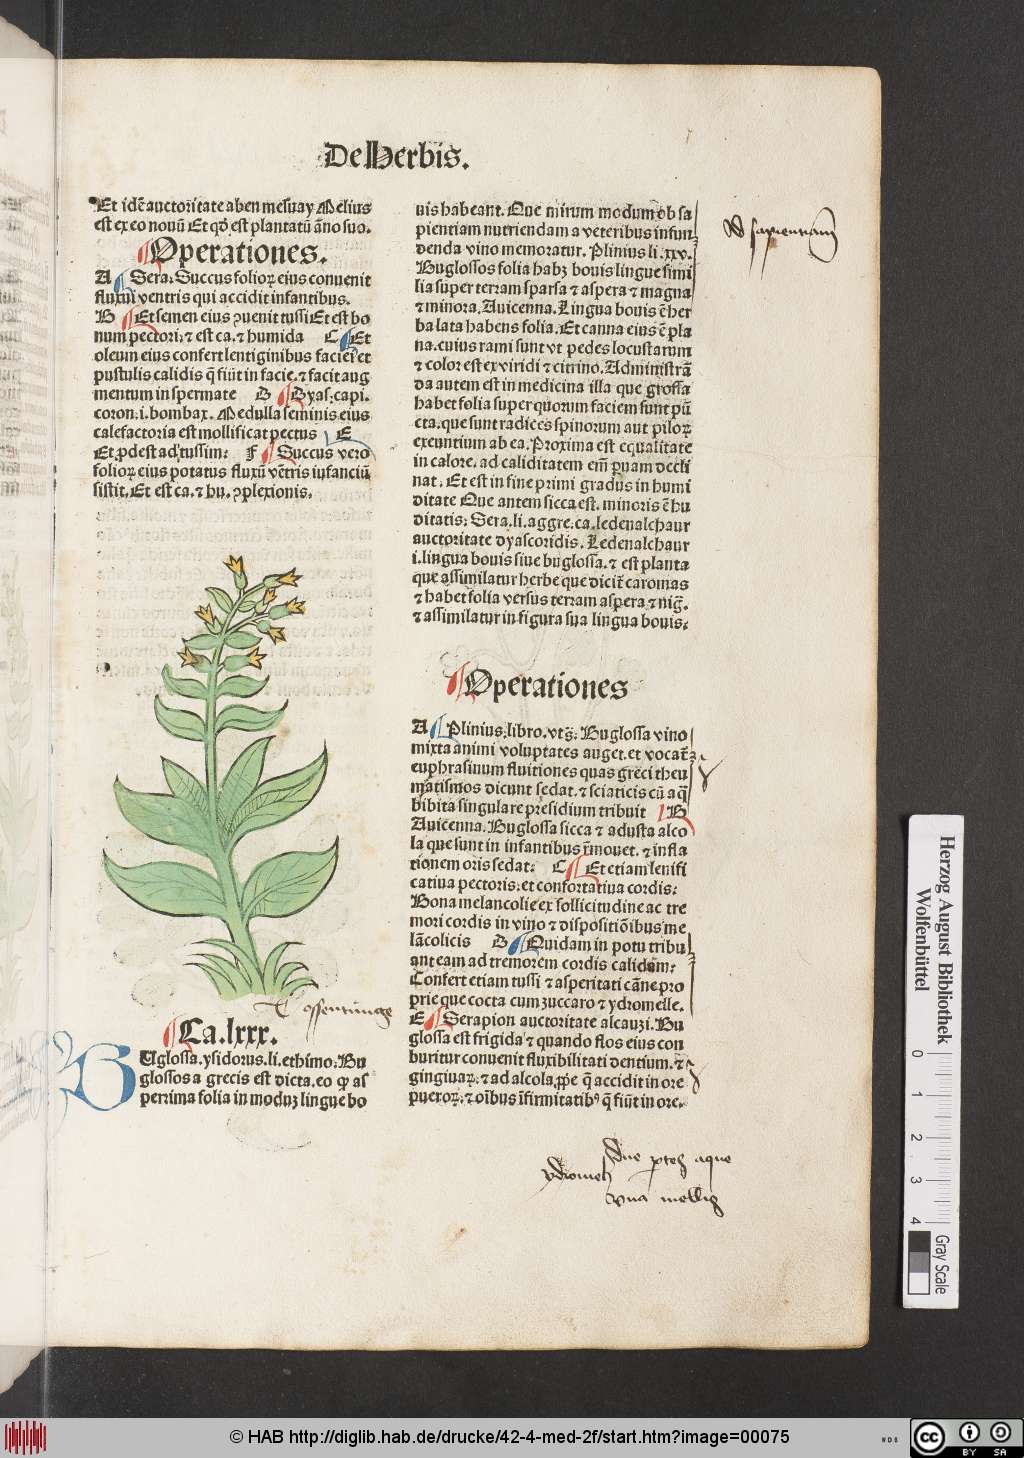 De Herbis.
Et idē auctoritate aben mesuay Melius
est ex eo nouū Et qđ est plantatū āno suo.
Operationes.
A Sera: Succus folioꝝ eius conuenit
fluxui ventris qui accidit infantibus.
B Et semen eius ꝯuenit tussi Et est bo
num pectori: ⁊ est ca. ⁊ humida C Et
oleum eius confert lentiginibus faciei et
pustulis calidis q̄ fiūt in facie. ⁊ facit aug
mentum in spermate D Dyas: capi.
coron: i. bombax. Medulla seminis eius
calefactoria est mollificat pectus E
Et ꝓdest ad tussim: F Succus vero
folioꝝ eius potatus fluxū vētris infanciū
sistit. Et est ca. ⁊ hu. ꝯplexionis.
Ca. lxxx.
BUglossa. ysidorus. li. ethimo: Bu
glossos a grecis est dicta. eo ꝙ as
perrima folia in moduꝫ lingue bo
uis habeant. Que mirum modum ob sa
pientiam nutriendam a veteribus infun
denda vino memoratur. Plinius li. xxv.
Buglossos folia habꝫ bouis lingue simi
lia super terram sparsa ⁊ aspera ⁊ magna
⁊ minora. Auicenna. Lingua bouis ē her
ba lata habens folia. Et canna eius ē pla
na. cuius rami sunt vt pedes locustarum
⁊ color est ex viridi ⁊ citrino. Administrā
da autem est in medicina illa que grossa
habet folia super quorum faciem sunt pū
cta. que sunt radices spinorum aut piloꝝ
exeuntium ab ea. Proxima est equalitate
in calore. ad caliditatem em̄ pꝛuam decli
nat. Et est in fine primi gradus in humi
ditate Que autem sicca est. minoris ē hu
ditatis: Sera. li. aggre: ca. ledenalchaur
auctoritate dyascoridis. Ledenalchaur
i. lingua bouis siue buglossa. ⁊ est planta
que assimilatur herbe que dicit̄ caromas
⁊ habet folia versus terram aspera ⁊ nig̃.
⁊ assimilatur in figura sua lingua bouis:
Operationes
A Plinius: libro. vt s̄: Buglossa vino
mixta animi voluptates auget. et vocat̄
euphrasinum fluitiones quas greci theu
matismos dicunt sedat. ⁊ sciaticis cū aq̄
bibita singulare presidium tribuit B
Auicenna. Buglossa sicca ⁊ adusta alco
la que sunt in infantibus r̄mouet. ⁊ infla
tionem oris sedat: C Et etiam lenifi
catiua pectoris: et confortatiua cordis:
Bona melancolie ex sollicitudine ac tre
mori cordis in vino ⁊ dispositiōibus me
lācolicis D Quidam in potu tribu
unt eam ad tremorem cordis calidum:
Confert etiam tussi ⁊ asperitati cāne pro
prie que cocta cum zuccaro ⁊ ydromelle.
E Serapion auctoritate alcauzi. Bu
glossa est frigida ⁊ quando flos eius con
buritur conuenit fluxibilitati dentium. ⁊
gingiuaꝝ: ⁊ ad alcola. ꝓpe q̄ accidit in ore
pueroꝝ: ⁊ oībus īfirmitatibꝰ q̄ fiūt in ore.
Ad sapientiam
Ossentunge
ydromel
due ptes aque
vna mellis
Herzog August Bibliothek
Wolfenbüttel
0 1 2 3 4
Gray Scale
© HAB http://diglib.hab.de/drucke/42-4-med-2f/start.htm?image=00075
WDB
cc BY SA